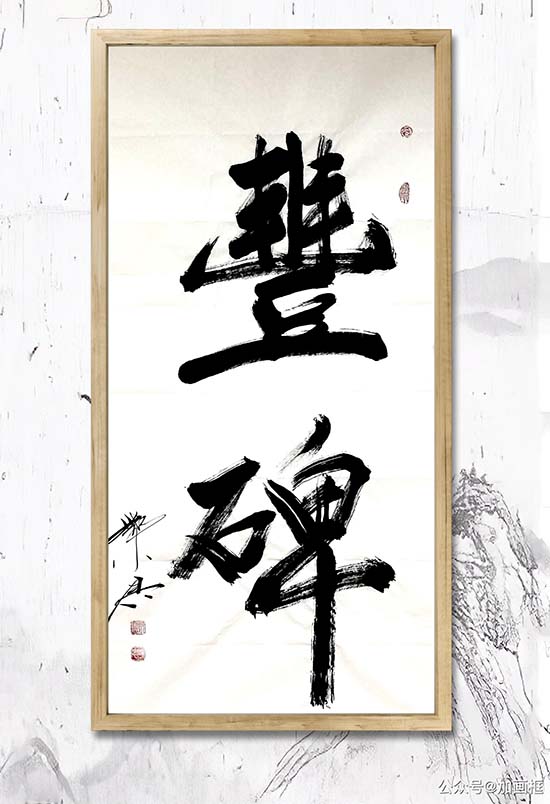 豐碑
公众号@加画框